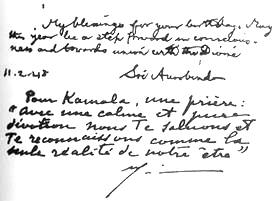 My blessings for your birthday. May
this year be a step forward in conscious-
ness and towards union with the Divine
11.2.48 Sri Aurobindo
Pour Kamala, une prière:
"avec une calme et pure
dévotion nous Te saluons et
Te reconnaissons comme la
seule réalité de notre être"